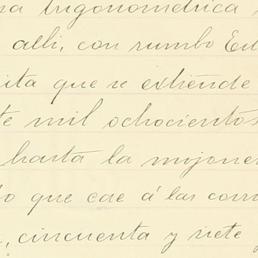 trigonometrica
alli, con rumbo
que se extiende
mil ochocientos
hasta la mojone
que cae á las
cincuenta y siete